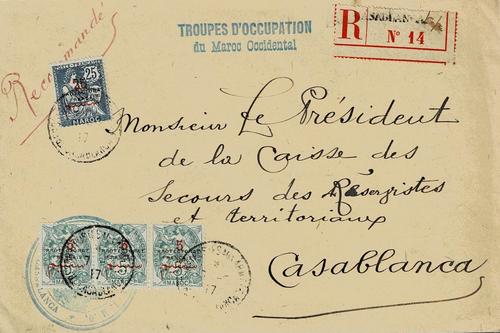 Recommandé
TROUPES D'OCCUPATION
du Maroc Occidental
R
CASABLANCA
Nº 14
25
MAROC
Monsieur Le Président
de la Caisse des
Secours des Réservistes
et territoriaux
Casablanca
5
5
5
17
17
17
CASABLANCA